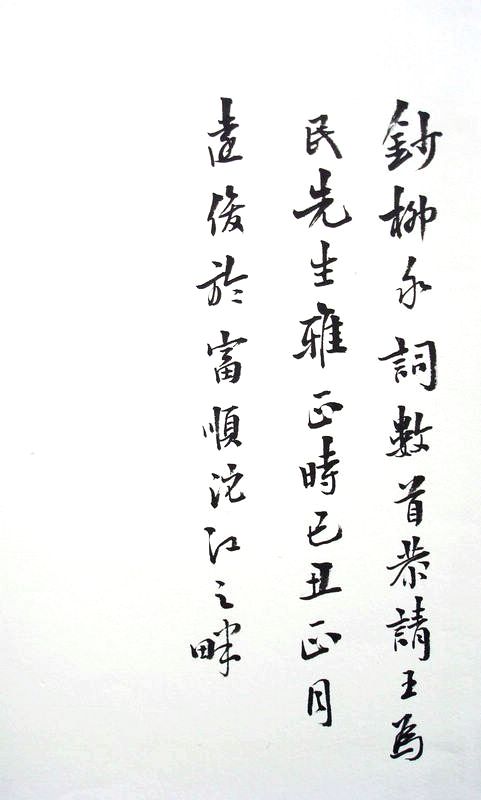 鈔柳永詞數首恭請王為
民先生雅正時己丑正月
建俊於富順沱江之畔